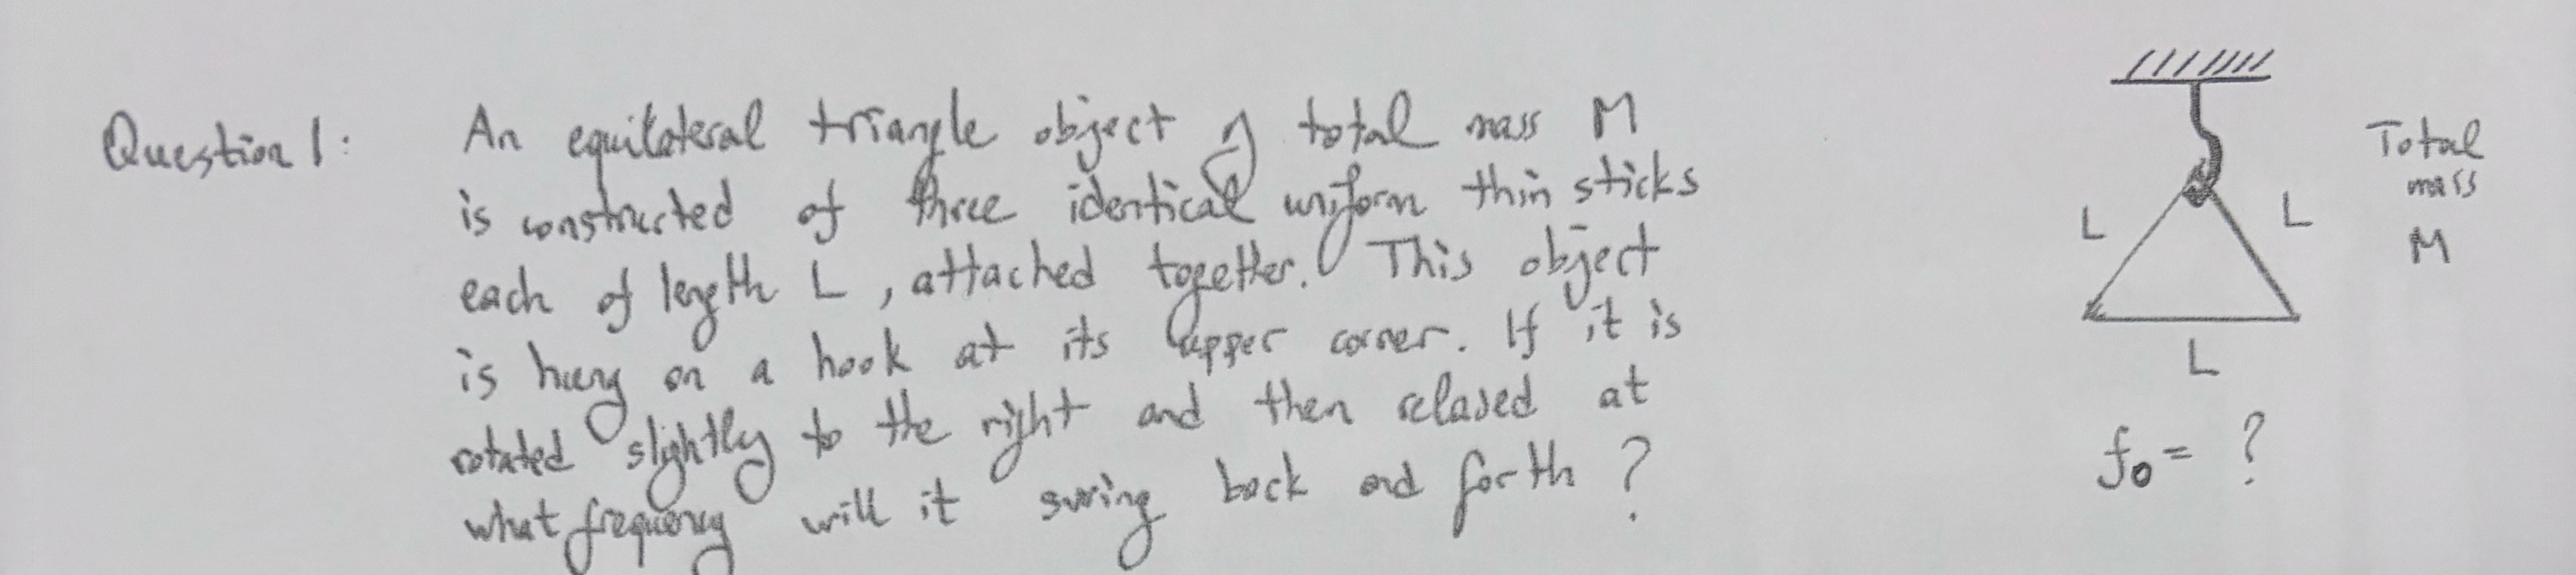 Question 1: An equilateral triangle object of total mass M
is constructed of three identical uniform thin sticks
each of length L, attached together. This object
is hung on a hook at its upper corner. If it is
rotated slightly to the right and then relased at
what frequency will it swing back and forth ?
Total
mass
M
L
L
L
f₀ = ?